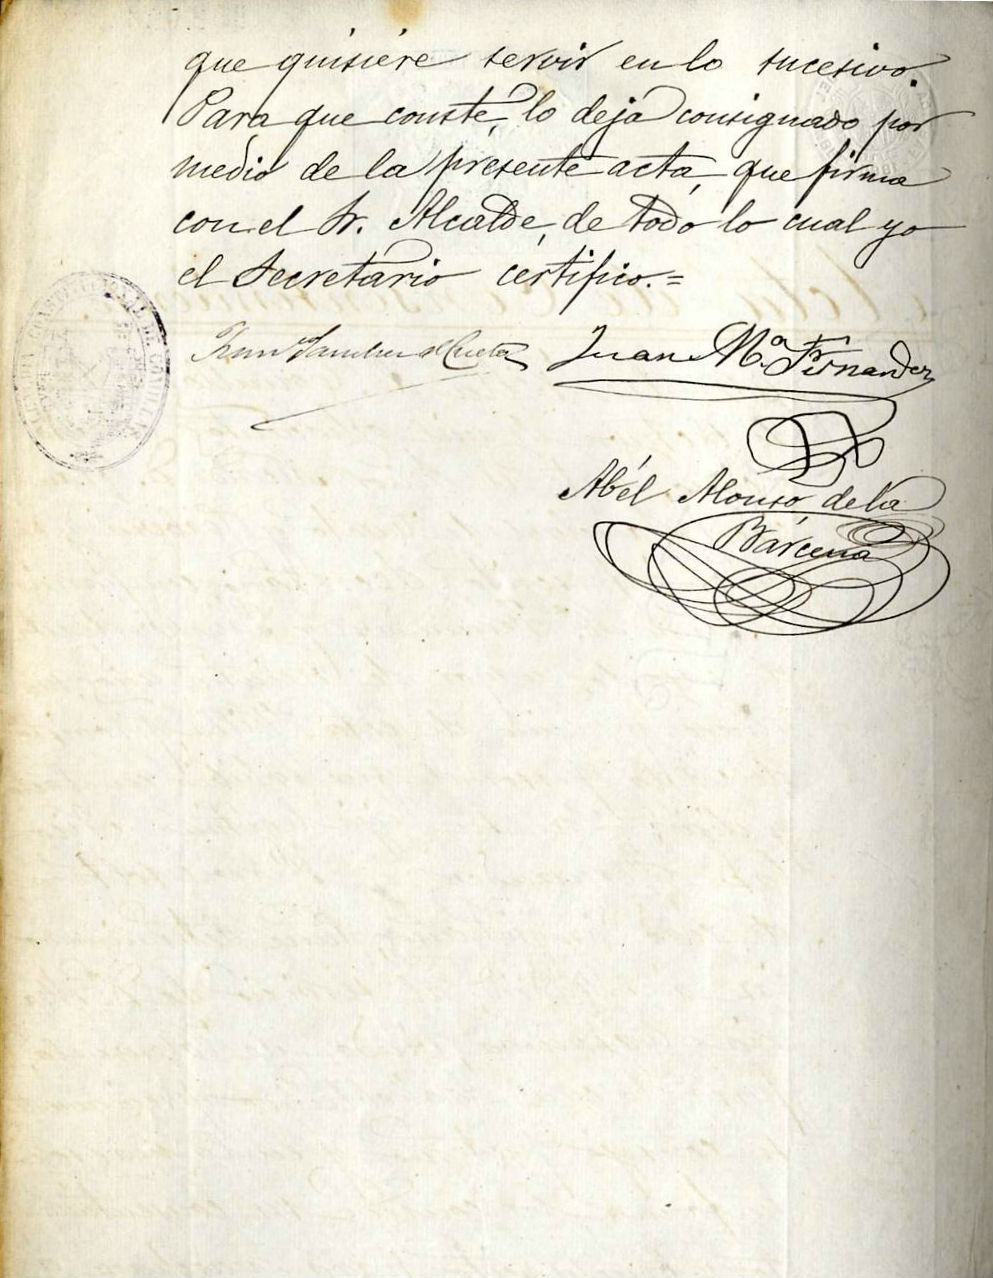 que quisiére servir en lo sucesivo.
Para que conste, lo deja consignado por
medio de la presente acta, que firma
con el Sr. Alcalde, de todo lo cual yo
el Secretario certifico.=
Juan Mª. Fernandez
Abél Alonso de la
Bárcena